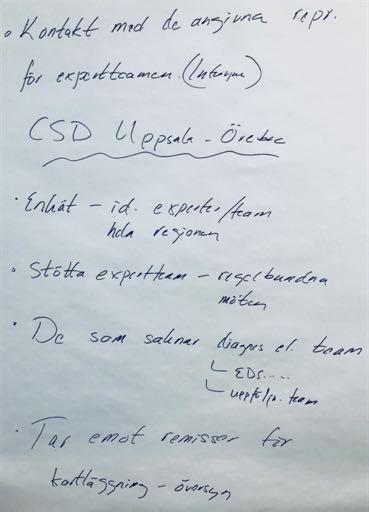 Kontakt med de angivna repr.
för expertteamen. (Intervju)
CSD Uppsala - Örebro
Enkät – id. experter/team
hela regionen
Stötta expertteam – regelbundna
möten
De som saknar diagnos el. team
EDS.....
uppföljn. team
Tar emot remisser för
kartläggning – översyn